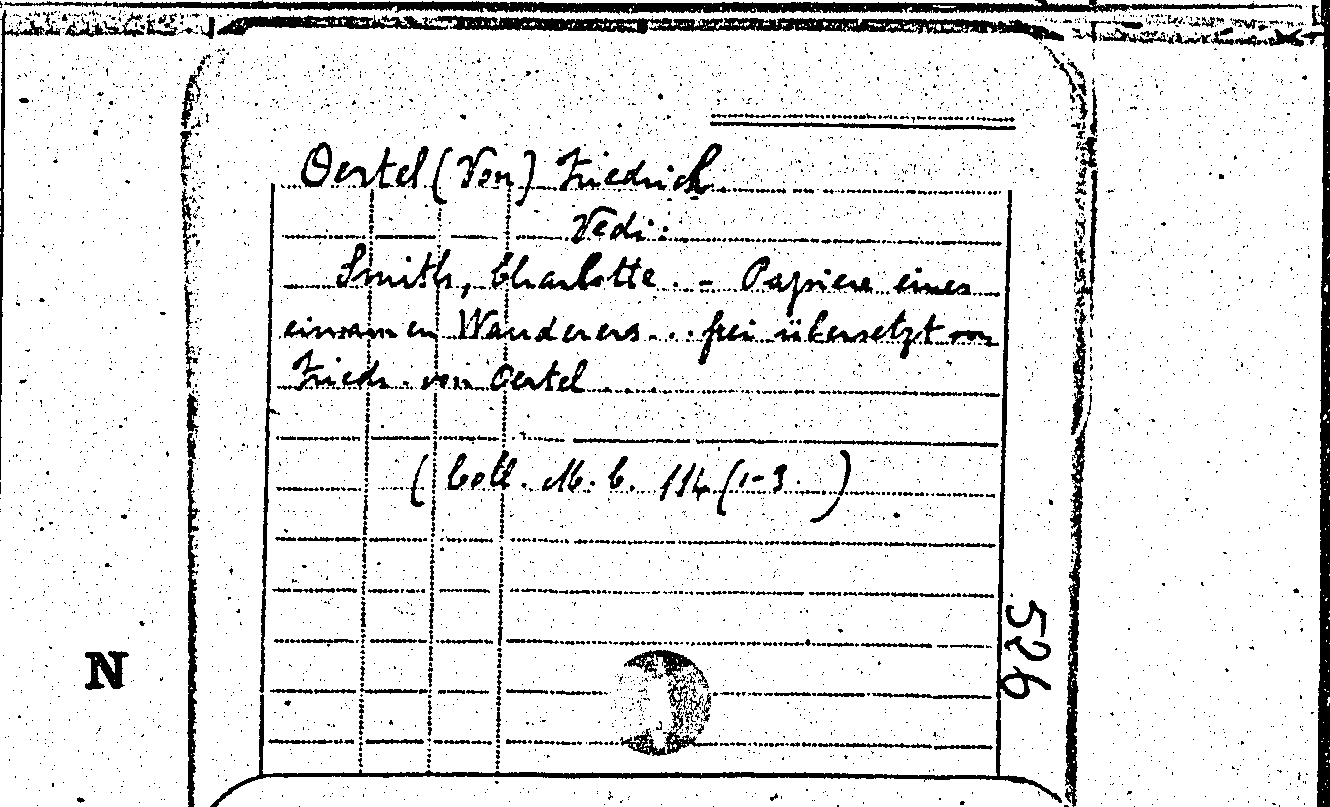 Oertel (Von) Friedrich
Vedi:
Smith, Charlotte. - Papiere eines
einsamen Wanderers... frei übersetzt von
Friedr. von Oertel...
(Coll. M. C. 114 (1-3.)
526
N